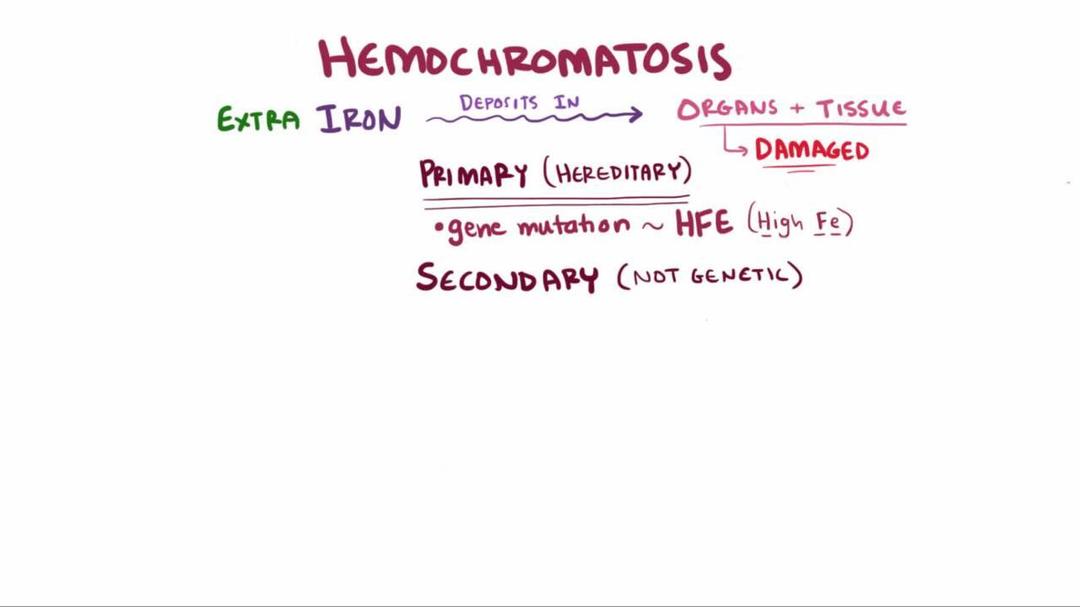 HEMOCHROMATOSIS
EXTRA IRON DEPOSITS IN ORGANS + TISSUE
DAMAGED
PRIMARY (HEREDITARY)
•gene mutation ~ HFE (High Fe)
SECONDARY (NOT GENETIC)